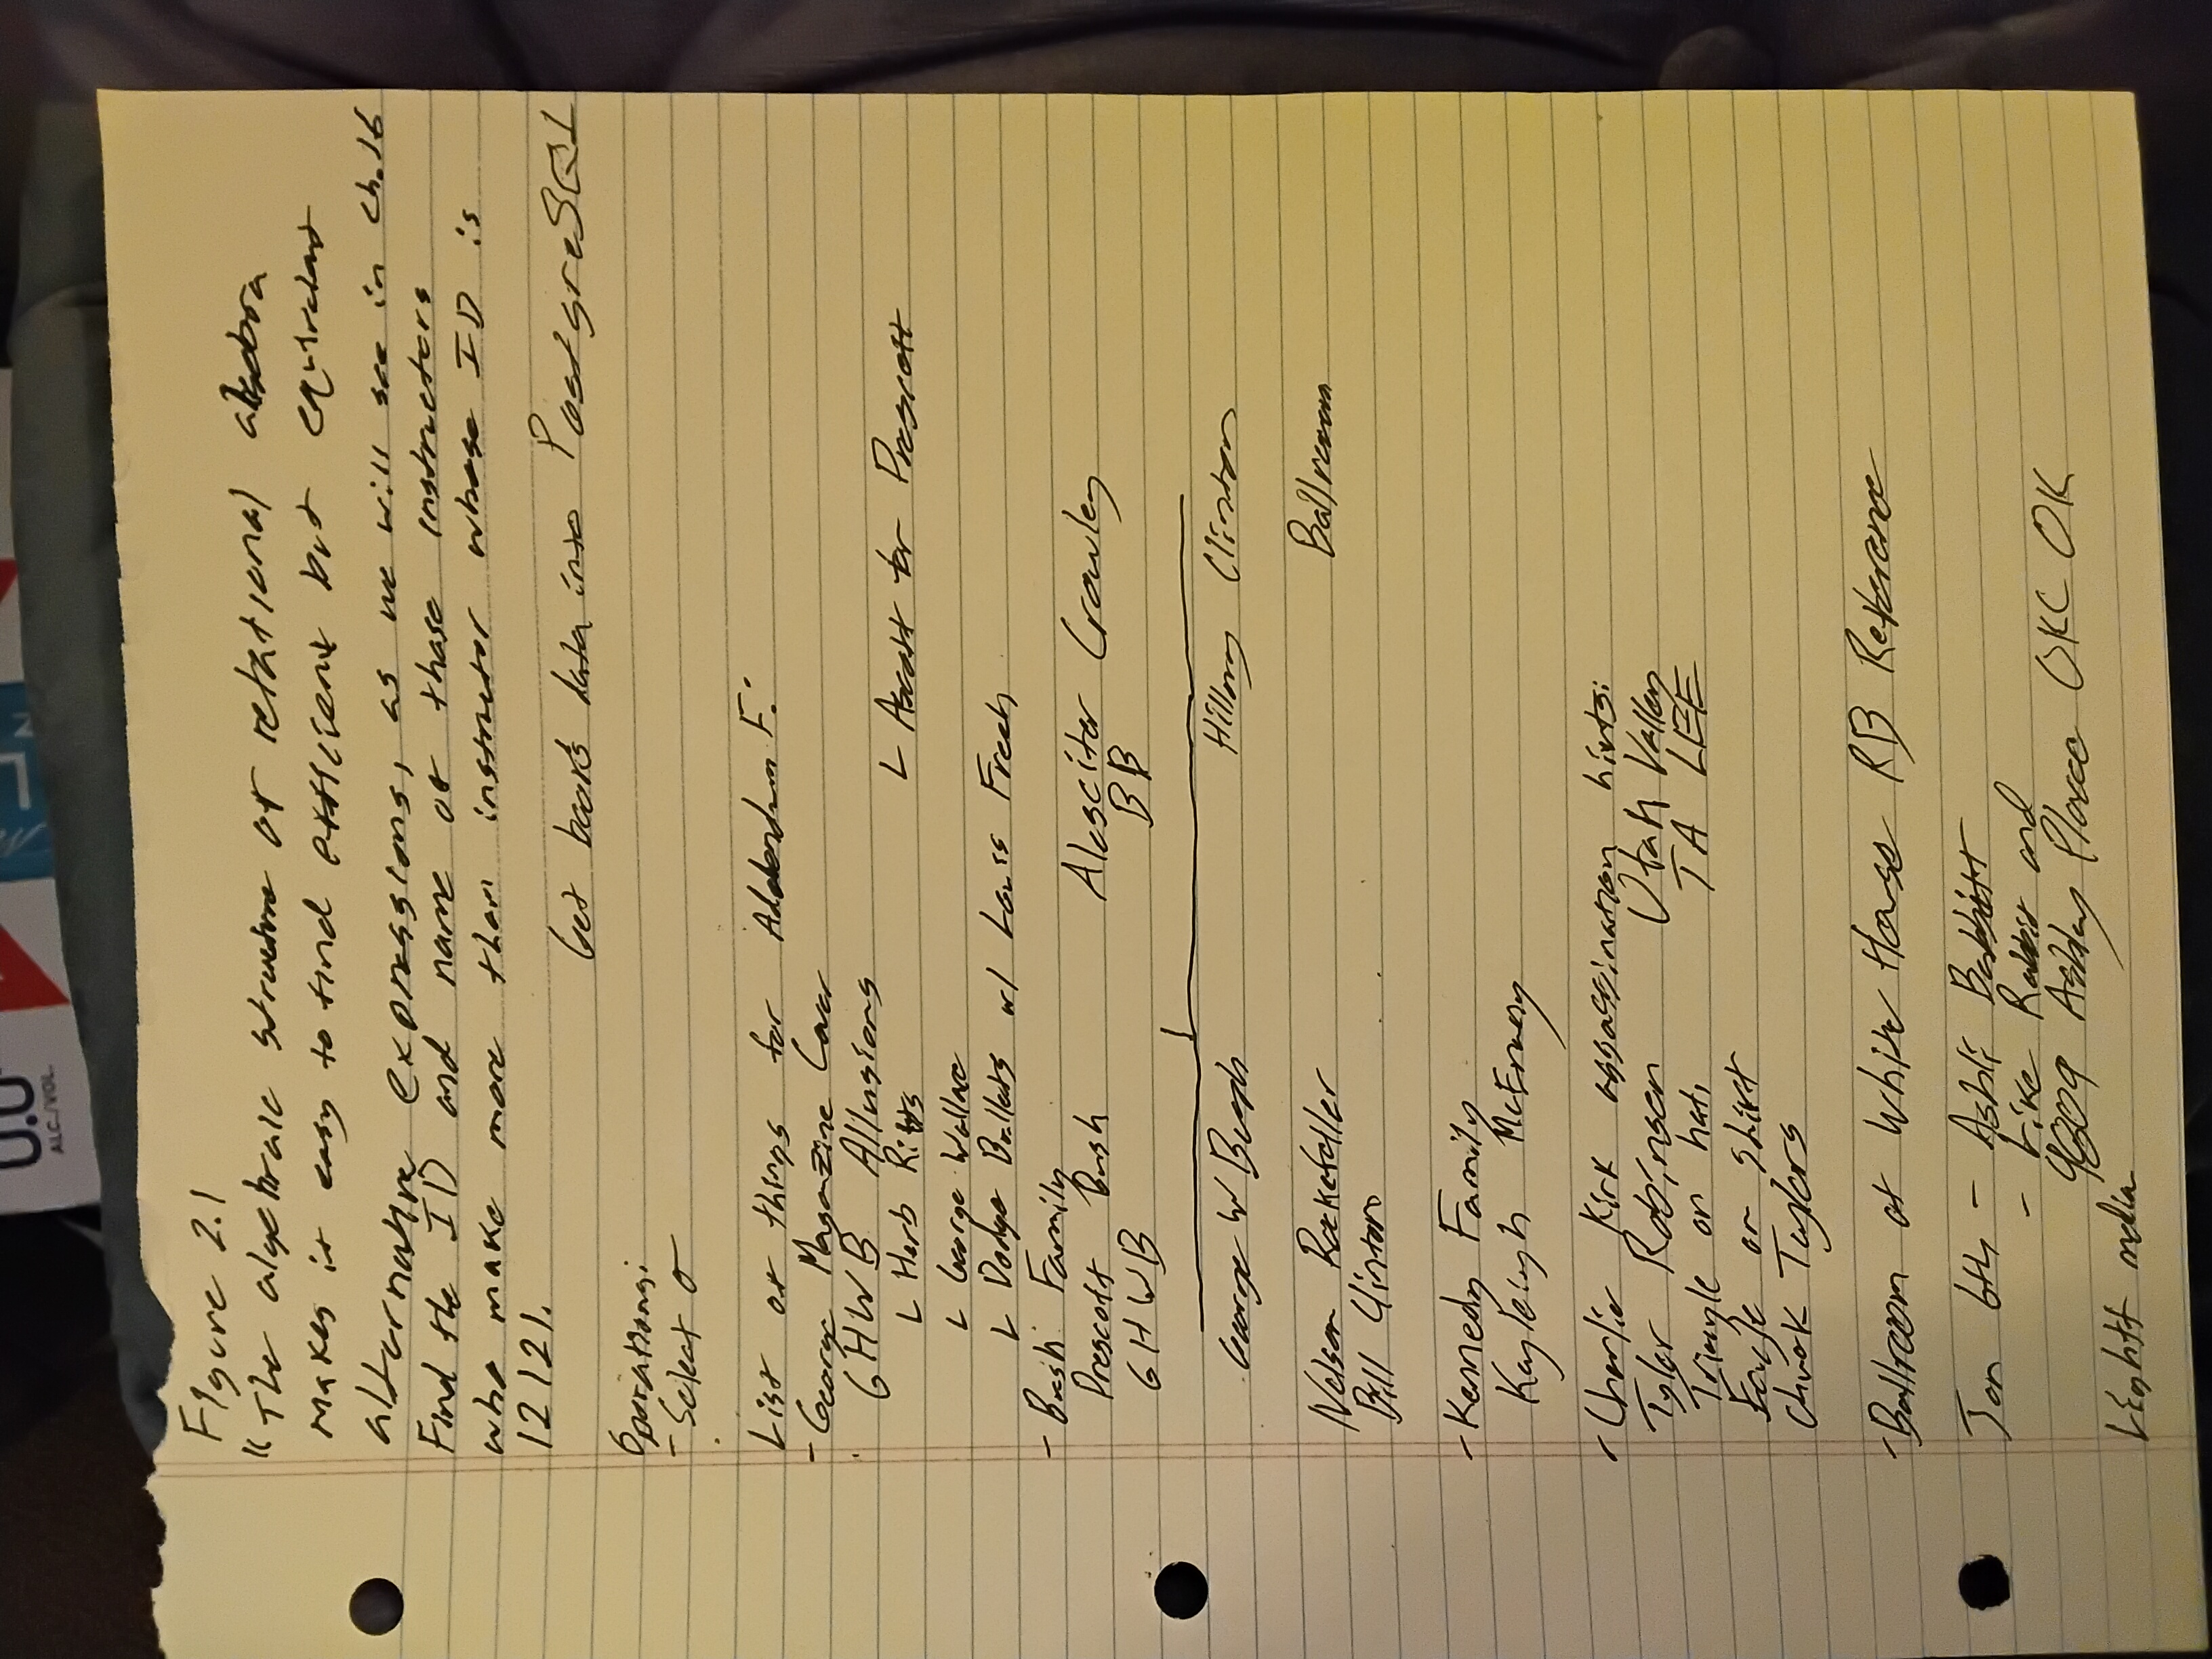 0.0
ALC./VOL.
Figure 2.1
"The algebraic structure of relational algebra
makes it easy to find efficient but equivalent
alternative expressions, as we will see in Ch.16
Find the ID and name of those instructors
who make more than instructor whose ID is
12121.
Get book's data into PostgreSQL
Operations:
- Select σ
List of things for Addendum F:
- George Magazine Cover
GHWB Allusions
L Herb Ritts L Ascott for Prescott
L George Wallace
L Dodge Bullets w/ Louis Freeh
- Bush Family
Prescott Bush Alesciter Crowley
GHWB BB
George W Bush Hillary Clinton
Nelson Rockefeller Ballroom
Bill Clinton
- Kennedy Family
Kayleigh McEnany
- Charlie Kirk assassination hints:
Tyler Robinson Utah Valley
Triangle on hat, TA LEE
Eagle on shirt
Chuck Taylors
- Ballroom at White House RB Reference
Jan 6th - Ashli Babbitt
- Like Rabbit and
9809 Ashley Place OKC OK
Lightt media